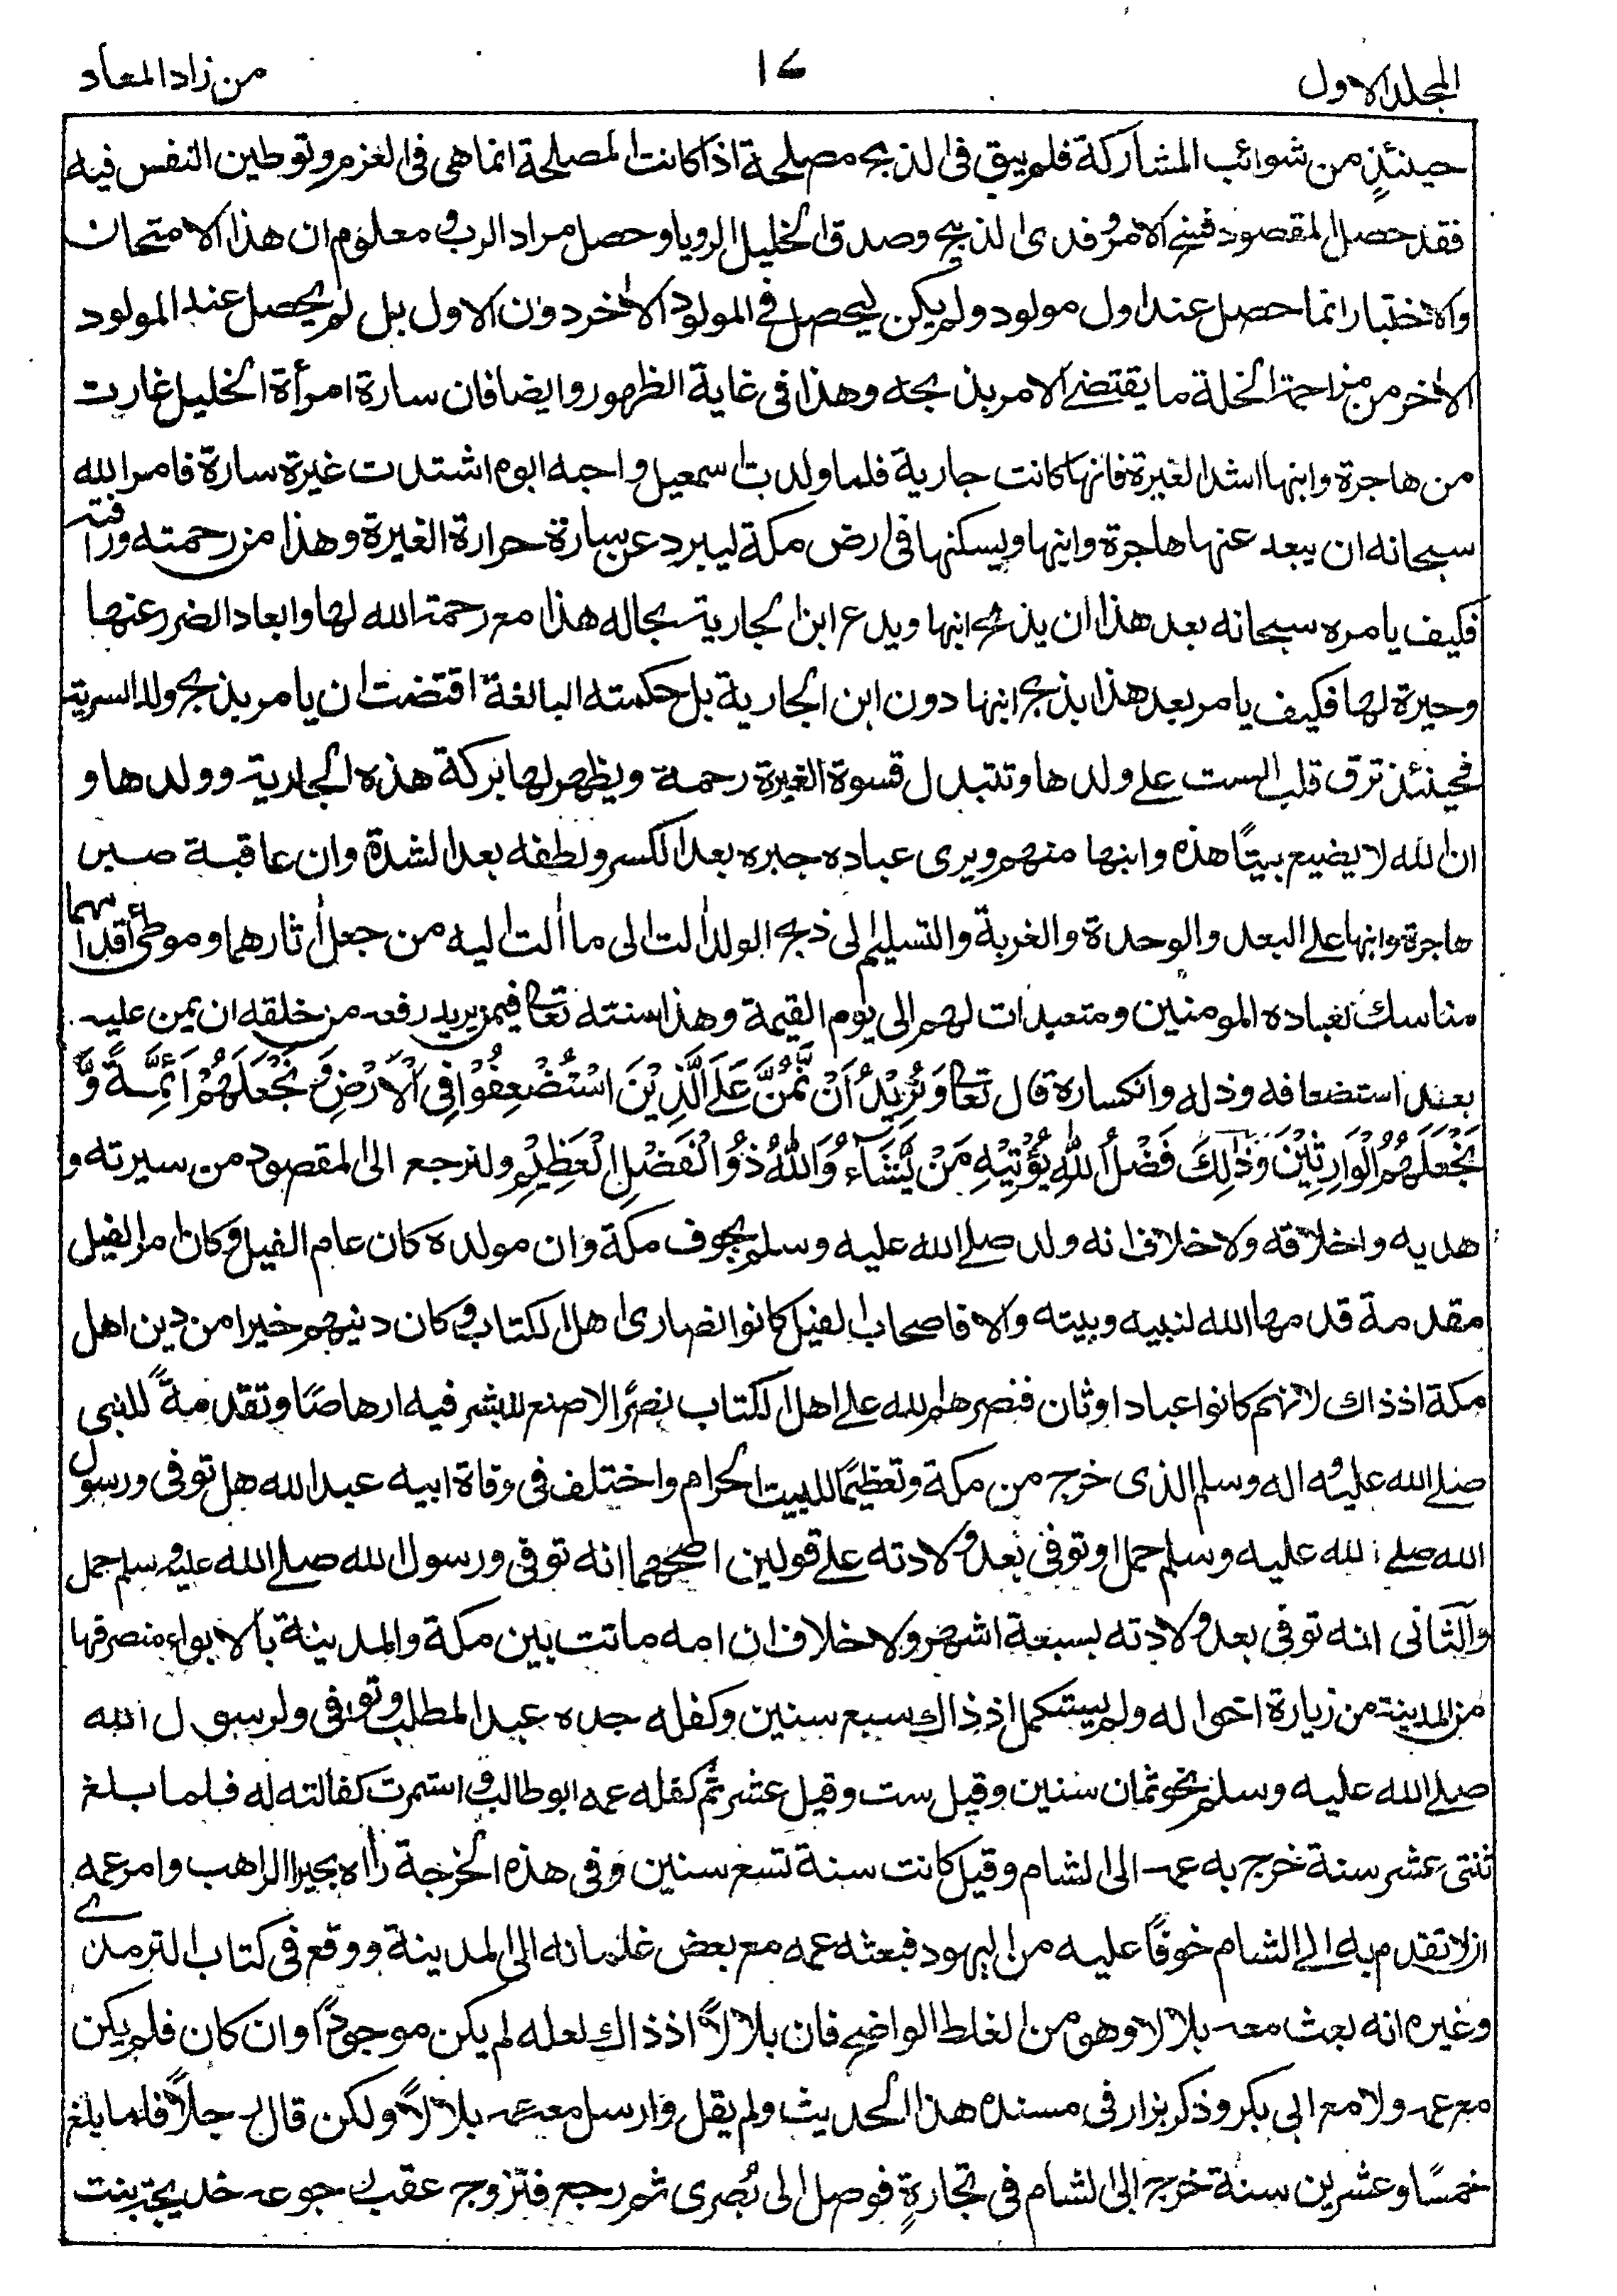 المجلد الاول
١٧
من زاد المعاد
حينئذٍ من شوائب المشاركة فلم يبق فى الذبح مصلحة اذا كانت المصلحة انما هى فى العزم وتوطين النفس فيه
فقد حصل المقصود فنسخ الامر وفدى الذبيح وصدق الخليل الرويا وحصل مراد الرب ومعلوم ان هذا الامتحان
والاختبار انما حصل عند اول مولود ولم يكن ليحصل فى المولود الاخر دون الاول بل لم يحصل عند المولود
الاخر من مزاحمة الخلة ما يقتضے الامر بذبحه وهذا فى غاية الظهور وايضا فان سارة امرأة الخليل غارت
من هاجرة وابنها اشد الغيرة فانها كانت جارية فلما ولدت اسمعيل واحبه ابوه اشتدت غيرة سارة فامر الله
سبحانه ان يبعد عنها هاجرة وابنها ويسكنها فى ارض مكة ليبرد عن سارة حرارة الغيرة وهذا من رحمته ورافته
فكيف يامره سبحانه بعد هذا ان يذبح ابنها ويدع ابن الجارية بحاله هذا مع رحمة الله لها وابعاد الضرر عنها
وحيرة لها فكيف يامر بعد هذا بذبح ابنها دون ابن الجارية بل حكمته البالغة اقتضت ان يامر بذبح ولد السرية
فحينئذ ترق قلب الست علے ولدها وتتبدل قسوة الغيرة رحمة ويظهر لها بركة هذه الجارية وولدها و
ان الله لا يضيع بيتًا هذه وابنها منهم ويرى عباده جبره بعد الكسر ولطفه بعد الشدة وان عاقبة صبر
هاجرة وابنها علے البعد والوحدة والغربة والتسليم الى ذبح الولد الت الى ما الت اليه من جعل اثارهما وموطئ أقدامهما
مناسك لعباده المومنين ومتعبدات لهم الى يوم القيمة وهذا سنته تعالى فيمن يريد رفعه من خلقه ان يمن عليه
بعد استضعافه وذله وانكساره قال تعالى وَنُرِيْدُ اَنْ نَّمُنَّ عَلَى الَّذِيْنَ اسْتُضْعِفُوْا فِى الْاَرْضِ وَ نَجْعَلَهُمْ اَئِمَّةً وَّ
نَجْعَلَهُمُ الْوَارِثِيْنَ وَذٰلِكَ فَضْلُ اللّٰهِ يُؤْتِيْهِ مَنْ يَّشَآءُ وَاللّٰهُ ذُو الْفَضْلِ الْعَظِيْمِ ولنرجع الى المقصود من سيرته و
هديه واخلاقه ولا خلاف انه ولد صلے الله عليه وسلم بجوف مكة وان مولده كان عام الفيل وكان امر الفيل
مقدمة قدمها الله لنبيه وبيته والا فاصحاب الفيل كانوا نصارى اهل الكتاب وكان دينهم خيرا من دين اهل
مكة اذ ذاك لانهم كانوا عباد اوثان فنصرهم الله علے اهل الكتاب نصرًا لا صنع للبشر فيه ارهاصًا وتقدمةً للنبى
صلے الله عليه واله وسلم الذى خرج من مكة وتعظيمًا للبيت الحرام واختلف فى وفاة ابيه عبد الله هل توفى ورسول
الله صلے الله عليه وسلم حمل او توفى بعد ولادته علے قولين اصحهما انه توفى ورسول الله صلے الله عليه وسلم حمل
والثانى انه توفى بعد ولادته بسبعة اشهر ولا خلاف ان امه ماتت بين مكة والمدينة بالابواء منصرفها
من المدينة من زيارة اخواله ولم يستكمل اذ ذاك سبع سنين وكفله جده عبد المطلب وتوفى ولرسول الله
صلے الله عليه وسلم نحو ثمان سنين وقيل ست وقيل عشر ثم كفله عمه ابو طالب واستمرت كفالته له فلما بلغ
ثنتى عشر سنة خرج به عمه الى الشام وقيل كانت سنة تسع سنين وفى هذه الخرجة رأه بحيرا الراهب وامر عمه
ان لا تقدم به الى الشام خوفًا عليه من اليهود فبعثه عمه مع بعض غلمانه الى المدينة ووقع فى كتاب الترمذے
وغيره انه بعث معه بلالا وهو من الغلط الواضح فان بلالاً اذ ذاك لعله لم يكن موجودًا وان كان فلم يكن
مع عمه ولا مع ابى بكر وذكر بزار فى مسنده هذا الحديث ولم يقل وارسل معه عمه بلالاً ولكن قال رجلاً فلما بلغ
خمسًا وعشرين سنة خرج الى الشام فى تجارةٍ فوصل الى بُصرى ثم رجع فتزوج عقب رجوعه خديجة بنت